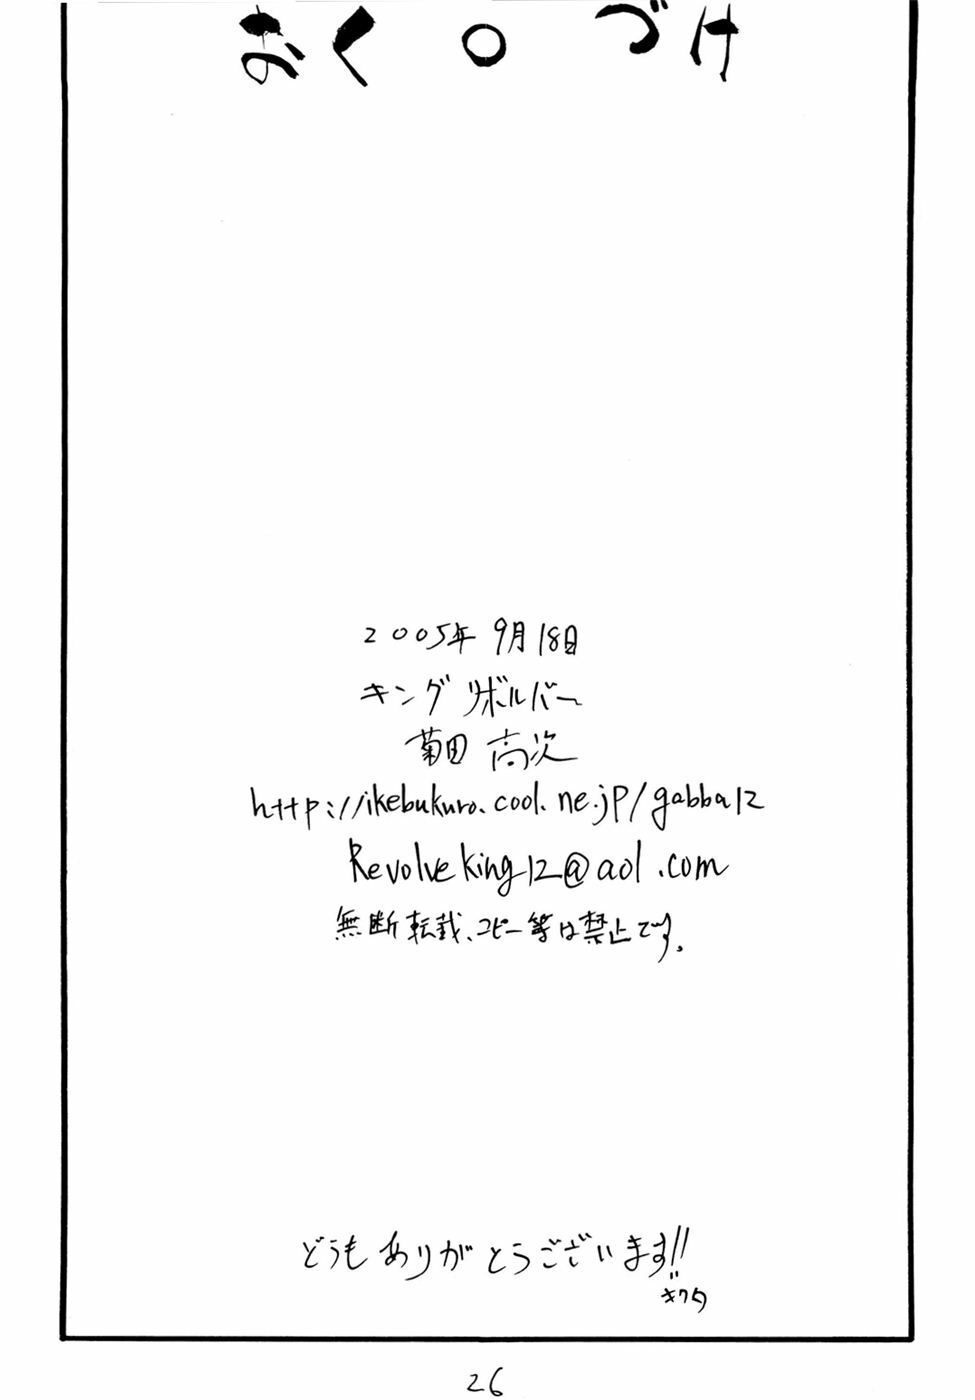 おく○づけ
2005年 9月18日
キングリボルバー
菊田 高次
http://ikebukuro.cool.ne.jp/gabba12
Revolveking12@aol.com
無断転載、コピー等は禁止です。
どうもありがとうございます!!
キクタ
26